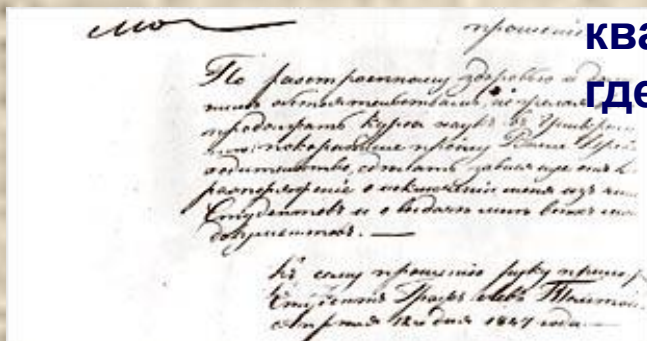 прошеніе
ква
где
По разстроенному здоровью и дом
шнимъ обстоятельствамъ, не желая
продолжать курса наукъ въ Универси
покорнѣйше прошу Ваше
сдѣлать зависящее отъ
распоряженіе о исключеніи меня изъ числа
Студентовъ и о выдачѣ мнѣ всѣхъ моихъ
документовъ. —
Къ сему прошенію руку прило
Студентъ Графъ Левъ Толстой
Апрѣля 12го дня 1847 года